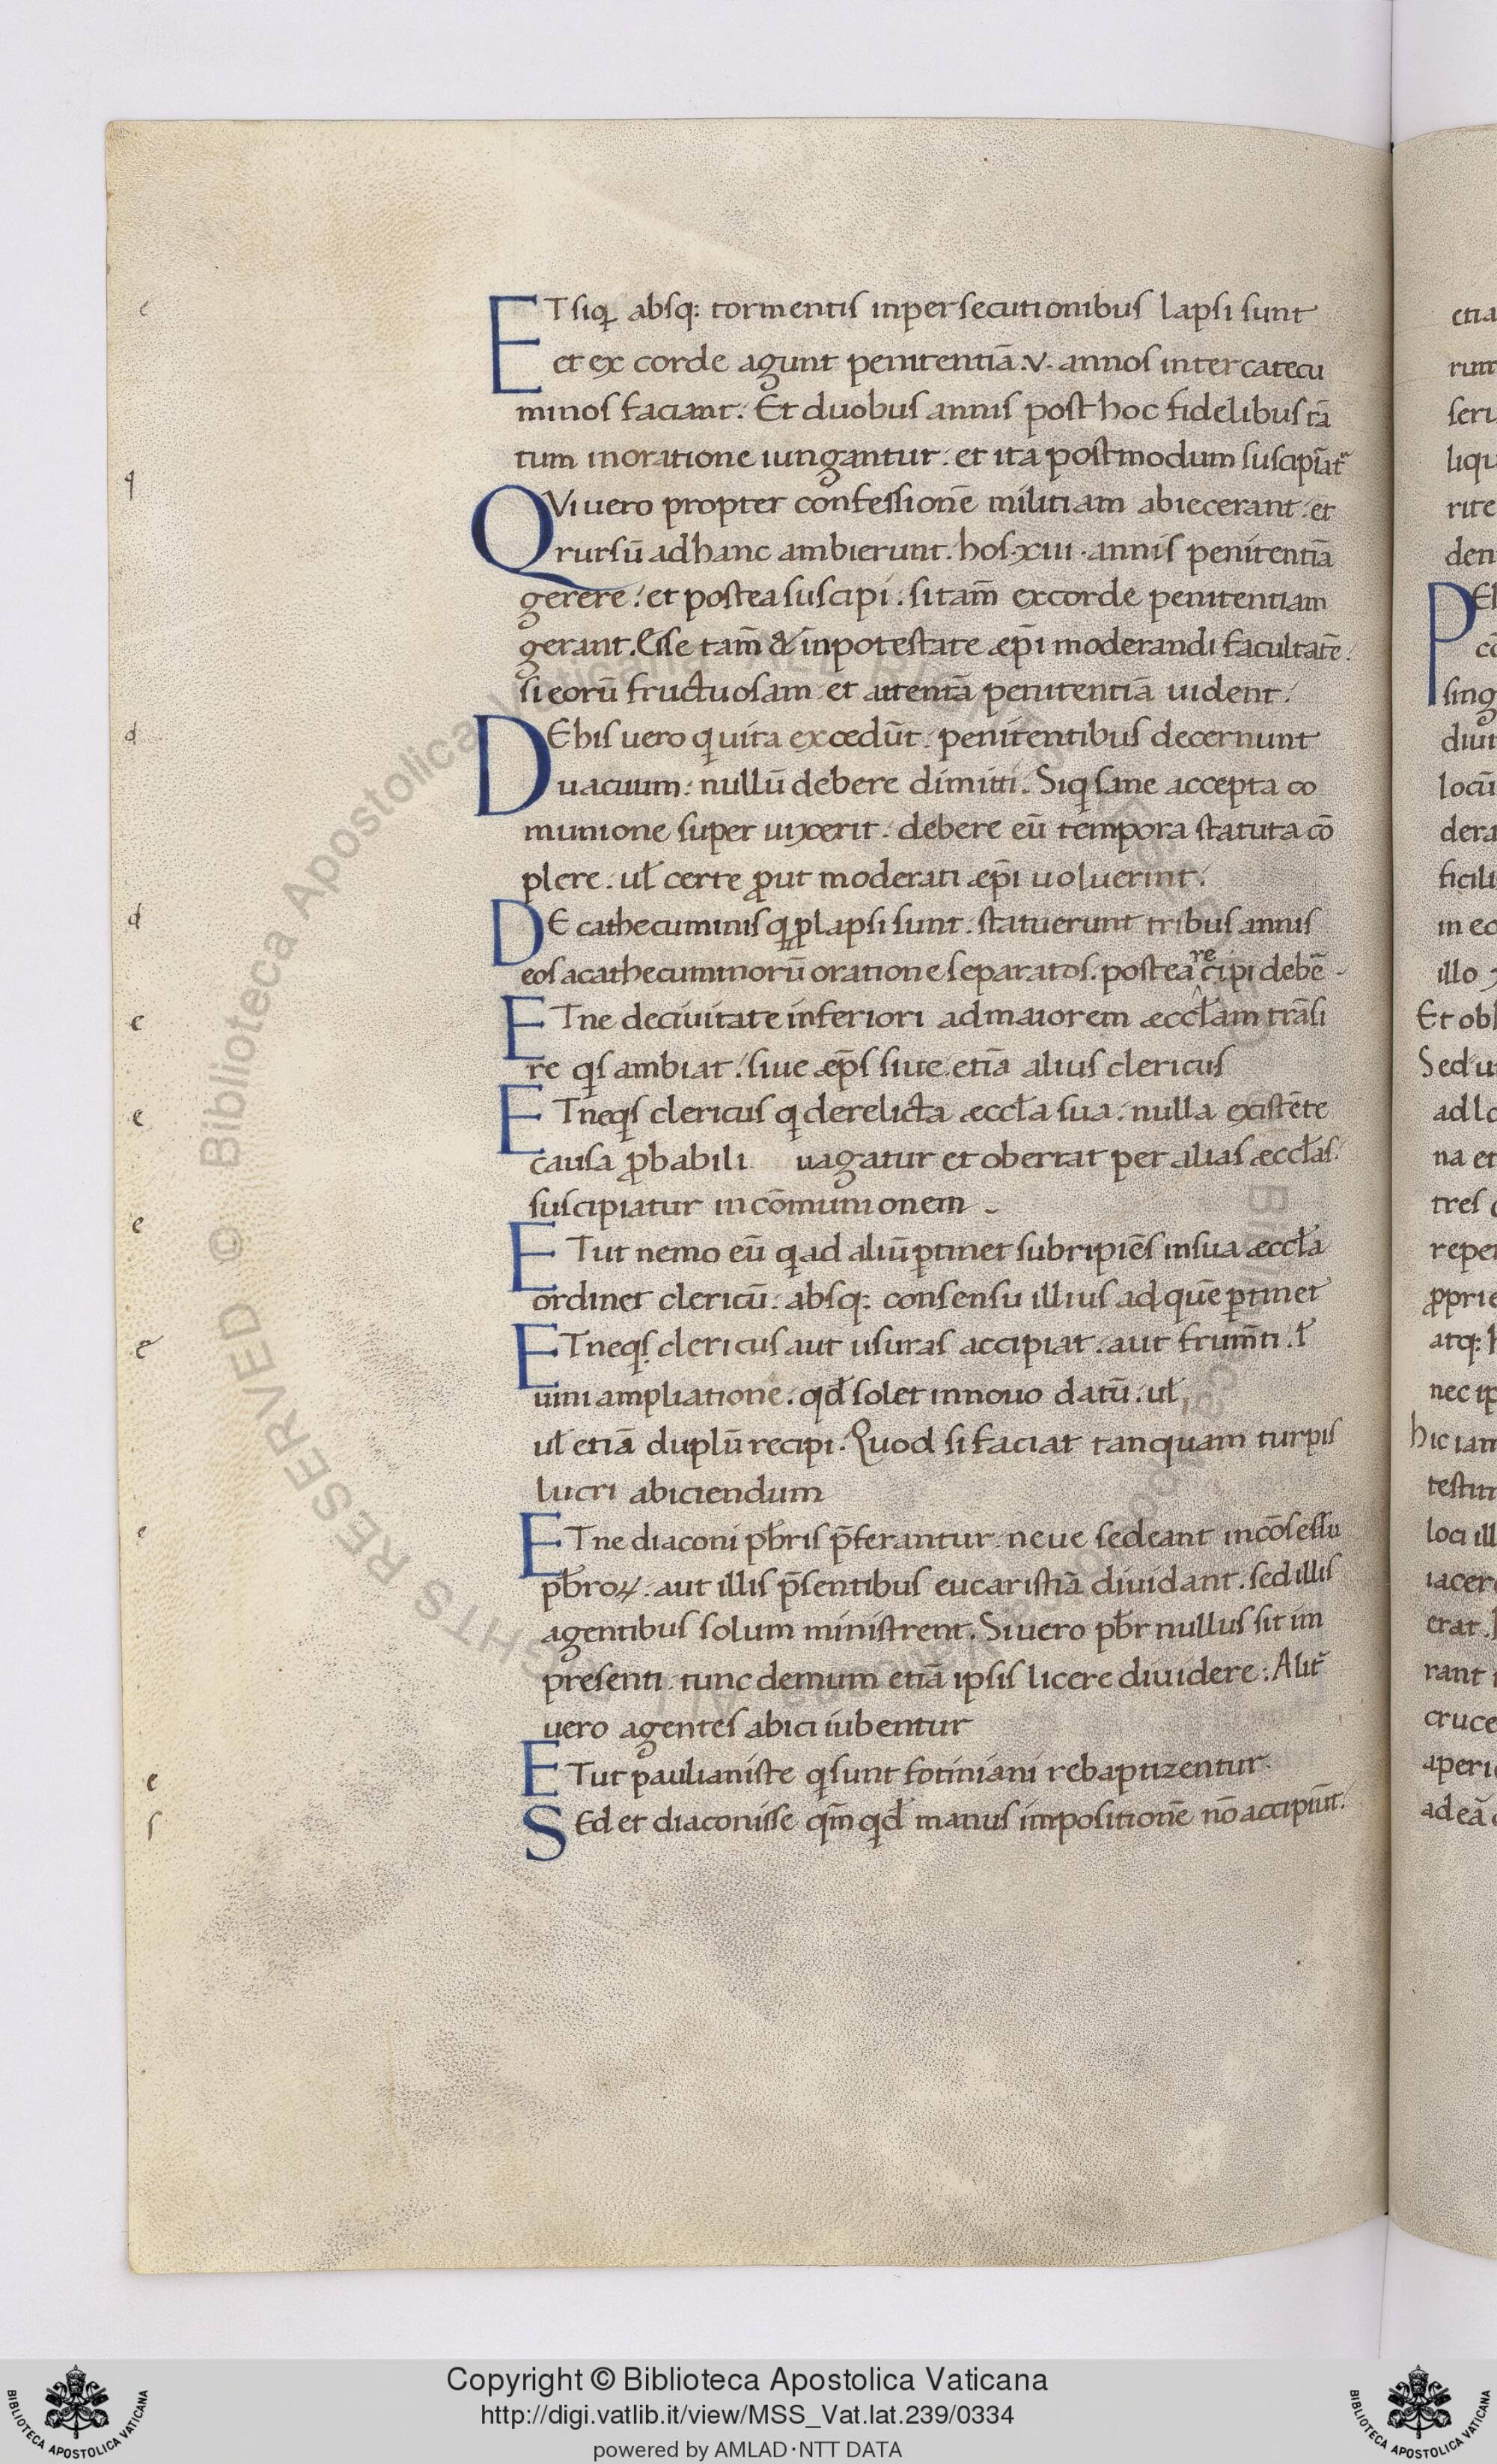 ETsiq absq: tormentis inpersecutionibus lapsi sunt
et ex corde agunt penitentiā .v. annos inter catecu
minos faciant. Et duobus annis post hoc fidelibus tā
tum inoratione iungantur. et ita postmodum suscipiāt᷑
QVi uero propter confessionē militiam abiecerant. et
rursū adhanc ambierunt. hos .xiii. annis penitentiā
gerere. et postea suscipi. si tam̄ excorde penitentiam
gerant. Esse tam̄ & inpotestate æp̄i moderandi facultatē.
si eorū fructuosam et attentā penitentiā uident.
DEhis uero q uita excedūt. penitentibus decernunt
uacuum. nullū debere dimitti. Siq sane accepta co
munione super uixerit. debere eū tempora statuta cō
plere. ul̄ certe ꝓut moderati æp̄i uoluerint.
DE cathecuminis q ꝓlapsi sunt. statuerunt tribus annis
eos acathecuminorū oratione separatos. postea recipi debē
ETne deciuitate inferiori admaiorem æccl̄am trāsi
re qs ambiat. siue æp̄s siue etiā alius clericus
ETneqs clericus q derelicta æccl̄a sua. nulla existēte
causa ꝓbabili uagatur et oberrat per alias æccl̄as
suscipiatur incōmunionem
ETut nemo eū q ad aliū ꝑtinet subripiēs insua æccl̄a
ordinet clericū. absq: consensu illius ad quē ꝑtinet
ETneqs clericus aut usuras accipiat. aut frum̄ti. l̄
uini ampliatione. qd̄ solet innouo datū. ul̄
ul̄ etiā duplū recipi. Quod si faciat tanquam turpis
lucri abiciendum
ETne diaconi pb̄ris p̄ferantur. neue sedeant incōsessu
pb̄roꝝ. aut illis p̄sentibus eucaristiā diuidant. sed illis
agentibus solum ministrent. Si uero pb̄r nullus sit im
presenti. tunc demum etiā ipsis licere diuidere. Alit᷑
uero agentes abici iubentur
ETut paulianiste q sunt fotiniani rebaptizentur.
SEd et diaconisse qm̄ qd̄ manus impositionē nō accipiūt.
e
q
d
d
e
e
e
e
e
e
s
etia
rum
seru
liqu
rite
den
PEl
cō
sing
diui
locū
dera
ficili
in eo
illo
Et obl
Sed u
ad lo
na et
tres
reper
ꝓprie
atq: h
nec ip
hic iam
testim
loci ill
iacer
erat.
rant
cruce
aperi
ad eā
© Biblioteca Apostolica Vaticana ALL RIGHTS RESERVED
Copyright © Biblioteca Apostolica Vaticana
http://digi.vatlib.it/view/MSS_Vat.lat.239/0334
powered by AMLAD·NTT DATA
BIBLIOTECA APOSTOLICA VATICANA
BIBLIOTECA APOSTOLICA VATICANA